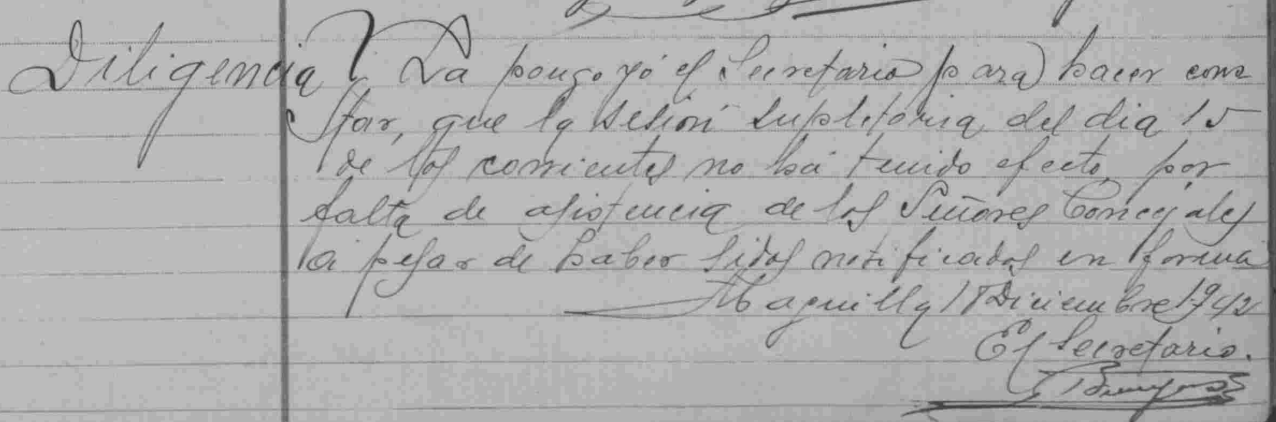 Diligencia La pongo yó el Secretario para hacer cons
tar, que la sesión supletoria del dia 15
de los corrientes no há tenido efecto por
falta de asistencia de los Señores Concejales
a pesar de haber sidos notificados en forma
Maguilla 17 Diciembre 1942
El Secretario.